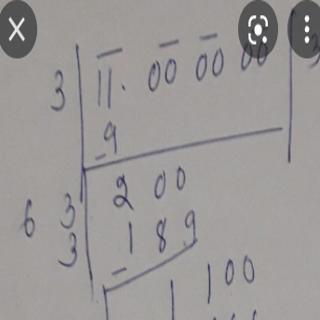 3 11. 00 00 00 3
- 9
6 3 2 00
3 - 1 8 9
1 1 00